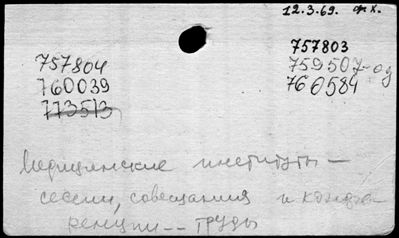 12.3.69. ф К.
757804
760039
773513
757803
759507-од
760584
Медицинские институты —
сессии, совещания и конфе-
ренции -- труды